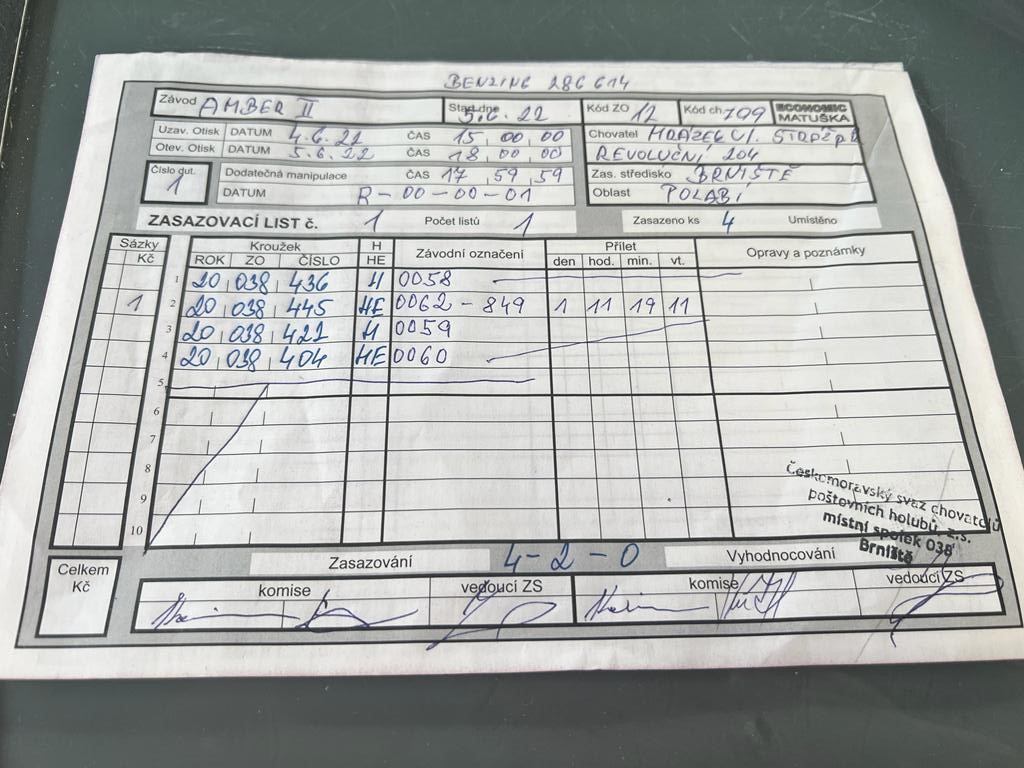 BENZING 286614
Závod AMBER II Start dne 5.6.22 Kód ZO 12 Kód ch 709 ECONOMIC MATUŠKA
Uzav. Otisk DATUM 4.6.22 ČAS 15,00,00 Chovatel MRÁZEK Vl.
Otev. Otisk DATUM 5.6.22 ČAS 18,00,00 REVOLUČNÍ 204
Číslo dut. 1 Dodatečná manipulace ČAS 17,59,59 Zas. středisko BRNIŠTĚ
DATUM R-00-00-01 Oblast POLABÍ
ZASAZOVACÍ LIST č. 1 Počet listů 1 Zasazeno ks 4 Umístěno
Sázky Kč Kroužek H HE Závodní označení Přílet Opravy a poznámky
ROK ZO ČÍSLO den hod. min. vt.
1 20 038 436 H 0058
1 2 20 038 445 HE 0062 - 849 1 11 19 11
3 20 038 421 H 0059
4 20 038 404 HE 0060
5
6
7
8
9
10
Českomoravský svaz chovatelů
poštovních holubů, z.s.
místní spolek 038
Brniště
Zasazování 4-2-0 Vyhodnocování
Celkem Kč komise vedoucí ZS komise vedoucí ZS